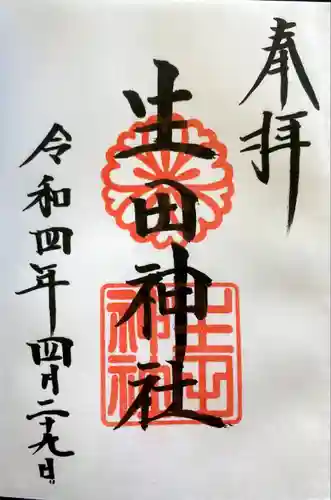 奉拝
生田神社
生田神社
令和四年四月二十九日